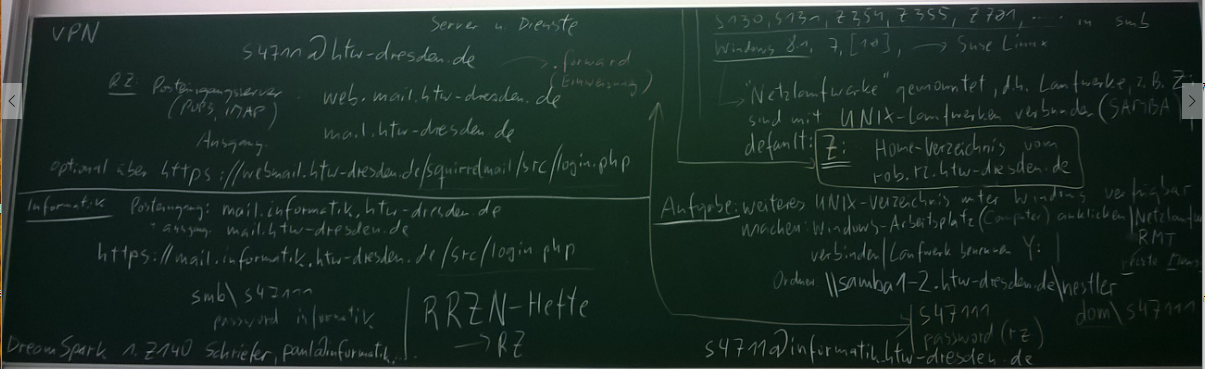 VPN
Server u. Dienste
s4711@htw-dresden.de → .forward
RZ: Posteingangsserver web.mail.htw-dresden.de
(POP3, IMAP)
Ausgang mail.htw-dresden.de
optional über https://webmail.htw-dresden.de/squirrelmail/src/login.php
Informatik Posteingang: mail.informatik.htw-dresden.de
- ausgang: mail.htw-dresden.de
https://mail.informatik.htw-dresden.de/src/login.php
smb\s47111
password informatik
RRZN-Hefte
→ RZ
DreamSpark 1. Z140 Schriefer, paul@informatik....
S130, S131, Z354, Z355, Z701, ..... in smb
Windows 8.1, 7, [10], → Suse Linux
"Netzlaufwerke" gemountet, d.h. Laufwerke, z.B. Z:
sind mit UNIX-Laufwerken verbunden (SAMBA)
default: Z: Home-Verzeichnis vom
rob.rz.htw-dresden.de
Aufgabe: weiteres UNIX-Verzeichnis unter Windows verfügbar
machen: Windows-Arbeitsplatz (Computer) anklicken | Netzlaufw
verbinden | Laufwerk benennen Y: | RMT
rechte Maus
Ordner \\samba1-2.htw-dresden.de\nestler
s47111 dom\s47111
password (rz)
s4711@informatik.htw-dresden.de